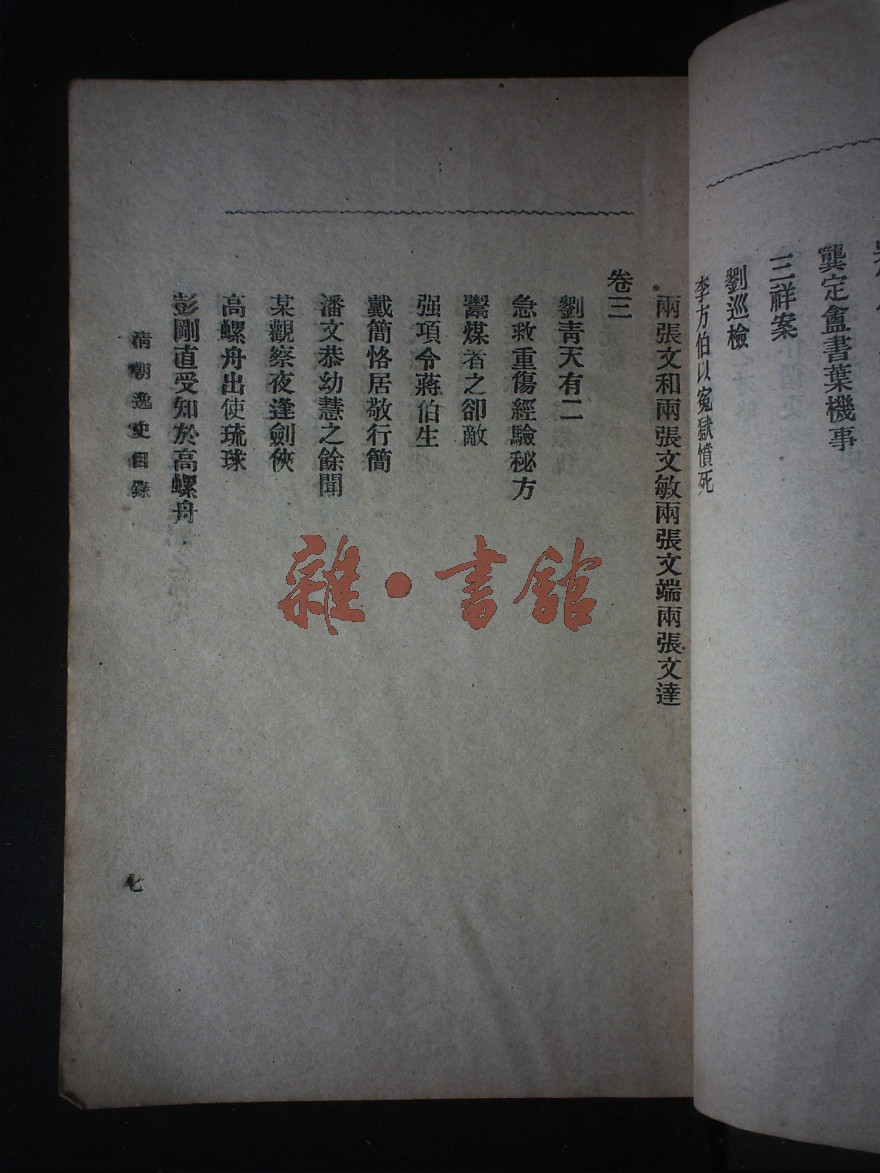 龔定盦書葉機事
三祥案
劉巡檢
李方伯以冤獄憤死
兩張文和兩張文敏兩張文端兩張文達
卷三
劉青天有二
急救重傷經驗秘方
鬻煤者之卻敵
强項令蔣伯生
戴簡恪居敬行簡
潘文恭幼慧之餘聞
某觀察夜逢劍俠
高螺舟出使琉球
彭剛直受知於高螺舟
清朝逸史目錄
七
雜·書館